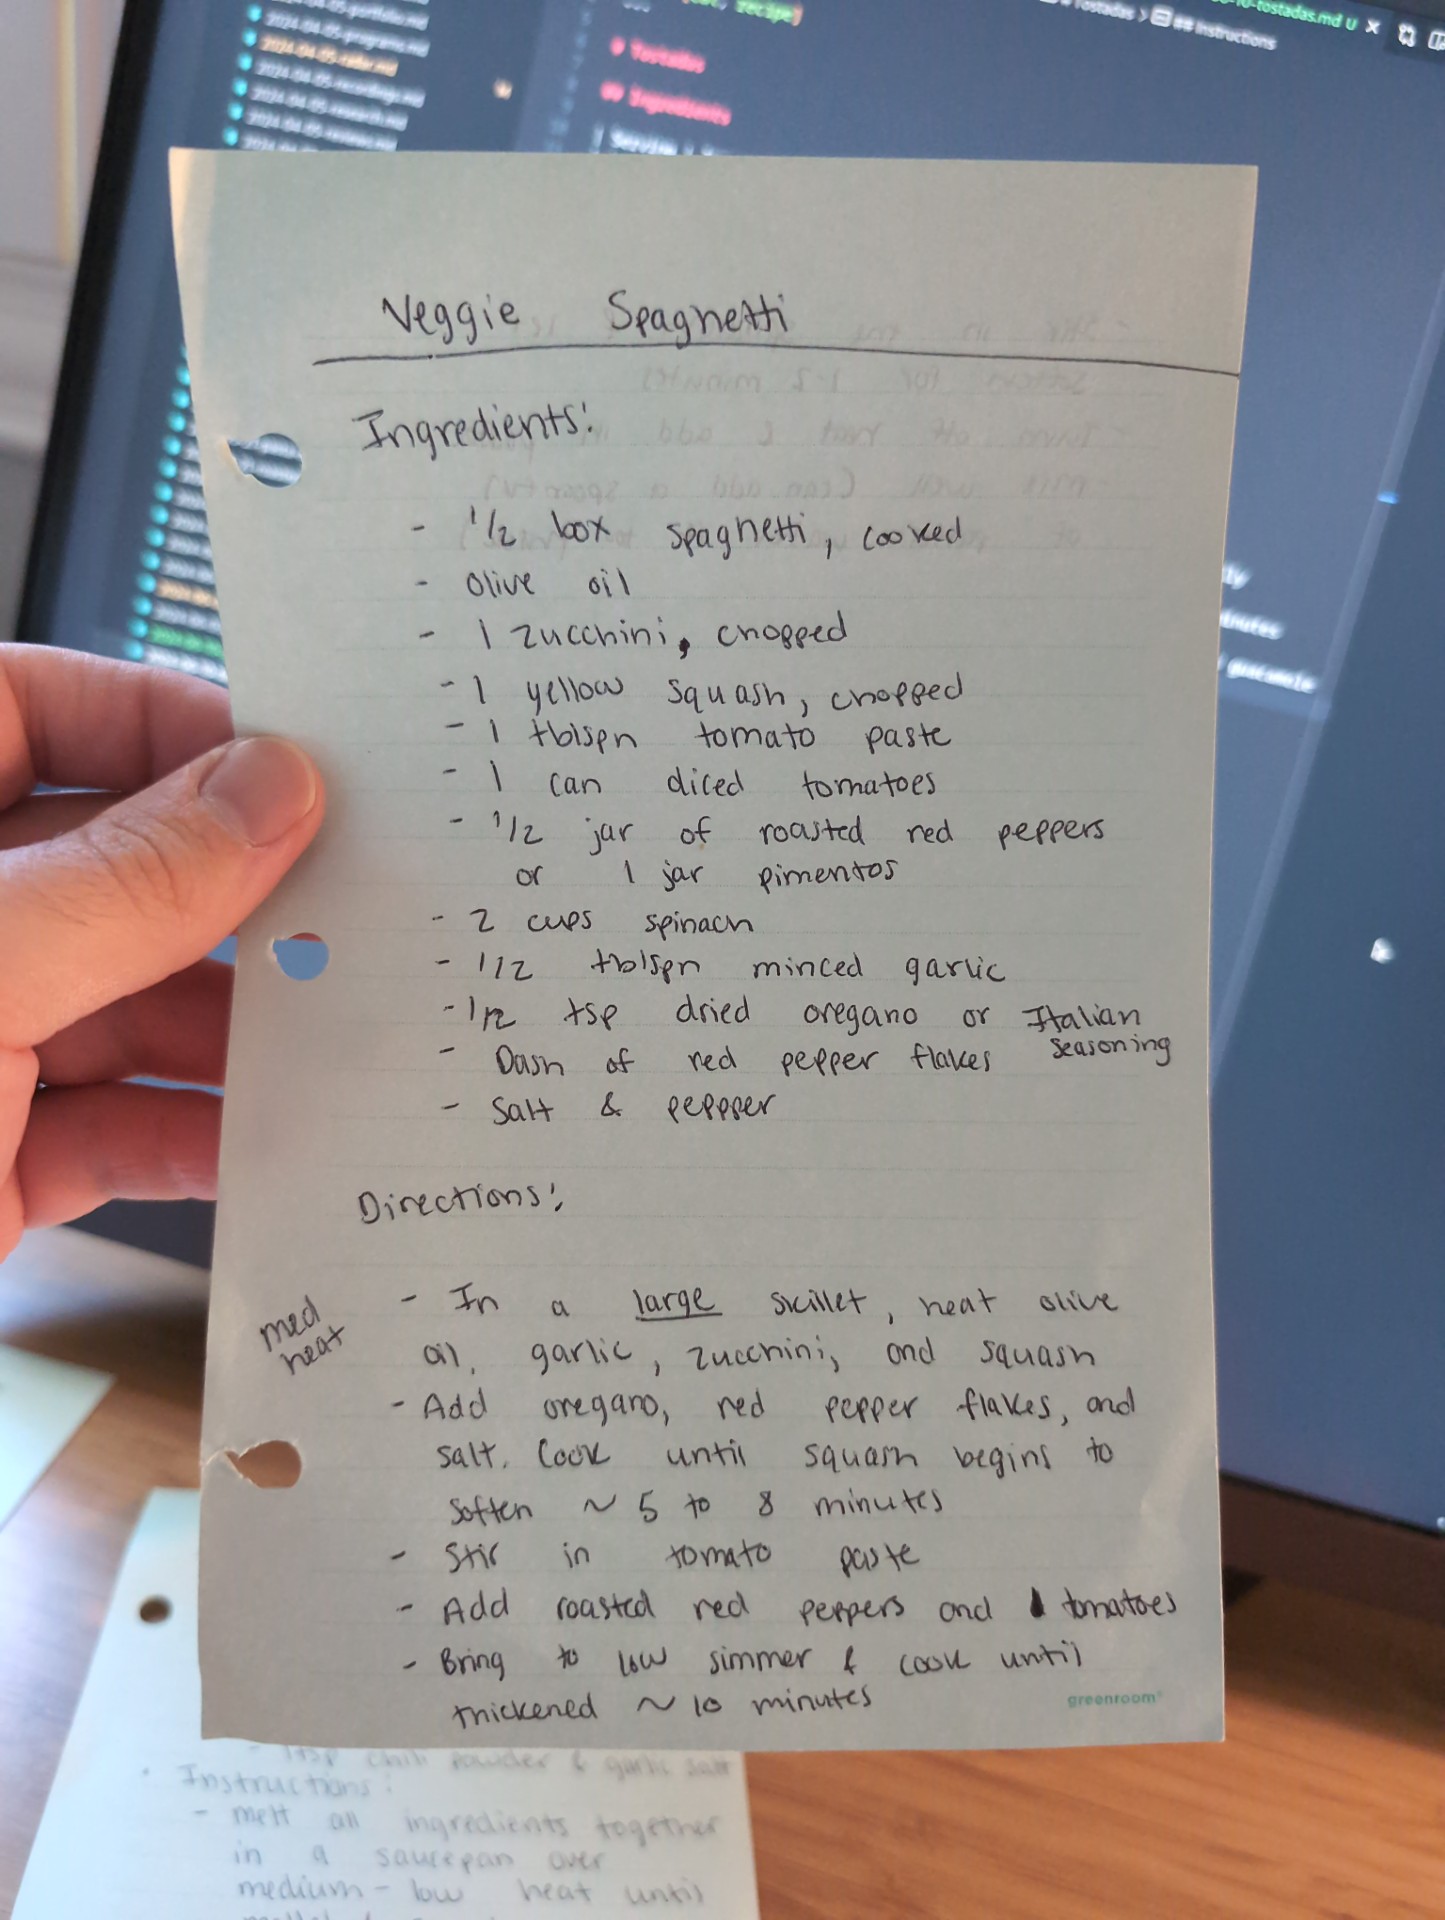 2024-04-05-programs.md
2024-04-05-recordings.md
2024-04-05-research.md
recipe)
# Tostadas
## Ingredients
-10-tostadas.md U
Tostadas > ## Instructions
Veggie Spaghetti
Ingredients:
- 1/2 box spaghetti, cooked
- olive oil
- 1 zucchini, chopped
- 1 yellow squash, chopped
- 1 tblspn tomato paste
- 1 can diced tomatoes
- 1/2 jar of roasted red peppers
or 1 jar pimentos
- 2 cups spinach
- 1/2 tblspn minced garlic
- 1/2 tsp dried oregano or Italian
Seasoning
- Dash of red pepper flakes
- Salt & peppper
Directions:
med
heat
- In a large skillet, heat olive
oil, garlic, zucchini, and squash
- Add oregano, red pepper flakes, and
salt. Cook until squash begins to
soften ~ 5 to 8 minutes
- Stir in tomato paste
- Add roasted red peppers and tomatoes
- Bring to low simmer & cook until
thickened ~ 10 minutes
greenroom
- 1 tsp chili powder & garlic salt
• Instructions:
- melt all ingredients together
in a saucepan over
medium-low heat until